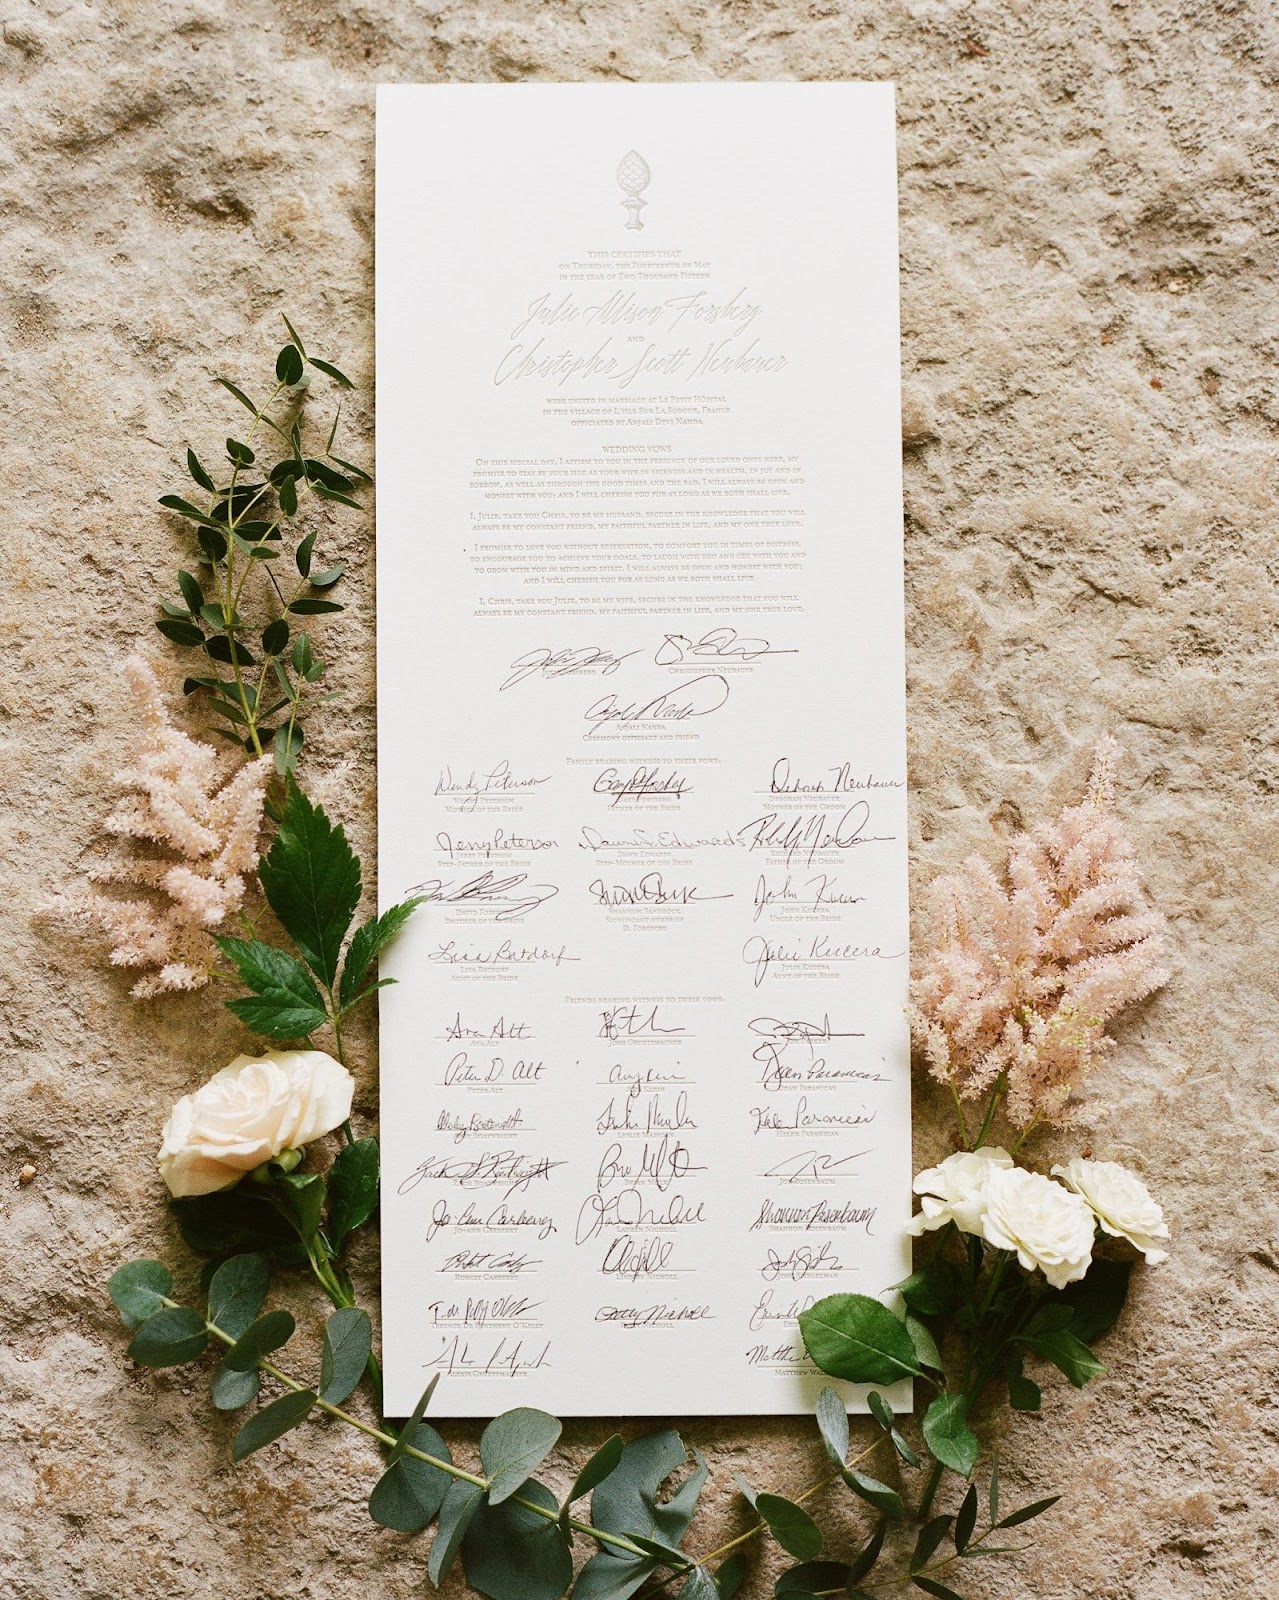 THIS CERTIFIES THAT
ON THURSDAY, THE FOURTEENTH OF MAY
IN THE YEAR OF TWO THOUSAND FIFTEEN
Julie Allison Forsberg
AND
Christopher Scott Neubauer
WERE UNITED IN MARRIAGE AT LE PETIT HÔPITAL
IN THE VILLAGE OF L'ISLE SUR LA SORGUE, FRANCE
OFFICIATED BY ANJALI DEVI NANDA
WEDDING VOWS
ON THIS SPECIAL DAY, I AFFIRM TO YOU IN THE PRESENCE OF OUR LOVED ONES HERE, MY
PROMISE TO STAY BY YOUR SIDE AS YOUR WIFE IN SICKNESS AND IN HEALTH, IN JOY AND IN
SORROW, AS WELL AS THROUGH THE GOOD TIMES AND THE BAD. I WILL ALWAYS BE OPEN AND
HONEST WITH YOU; AND I WILL CHERISH YOU FOR AS LONG AS WE BOTH SHALL LIVE.
I, JULIE, TAKE YOU CHRIS, TO BE MY HUSBAND, SECURE IN THE KNOWLEDGE THAT YOU WILL
ALWAYS BE MY CONSTANT FRIEND, MY FAITHFUL PARTNER IN LIFE, AND MY ONE TRUE LOVE.
I PROMISE TO LOVE YOU WITHOUT RESERVATION, TO COMFORT YOU IN TIMES OF DISTRESS,
TO ENCOURAGE YOU TO ACHIEVE YOUR GOALS, TO LAUGH WITH YOU AND CRY WITH YOU AND
TO GROW WITH YOU IN MIND AND SPIRIT. I WILL ALWAYS BE OPEN AND HONEST WITH YOU;
AND I WILL CHERISH YOU FOR AS LONG AS WE BOTH SHALL LIVE.
I, CHRIS, TAKE YOU JULIE, TO BE MY WIFE, SECURE IN THE KNOWLEDGE THAT YOU WILL
ALWAYS BE MY CONSTANT FRIEND, MY FAITHFUL PARTNER IN LIFE, AND MY ONE TRUE LOVE.
JULIE FORSBERG CHRISTOPHER NEUBAUER
Anjali Nanda
ANJALI NANDA
CEREMONY OFFICIANT AND FRIEND
FAMILY BEARING WITNESS TO THEIR VOWS:
Wendy Peterson Gary Forsberg Deborah Neubauer
WENDY PETERSON GARY FORSBERG DEBORAH NEUBAUER
MOTHER OF THE BRIDE FATHER OF THE BRIDE MOTHER OF THE GROOM
Jerry Peterson Dawn S. Edwards
JERRY PETERSON DAWN EDWARDS RICHARD NEUBAUER
STEP-FATHER OF THE BRIDE STEP-MOTHER OF THE BRIDE FATHER OF THE GROOM
John Kucera
DAVID FORSBERG SHANNON SANDROCK, JOHN KUCERA
BROTHER OF THE BRIDE SIGNIFICANT OTHER OF UNCLE OF THE BRIDE
D. FORSBERG
Lisa Batdorf Julie Kucera
LISA BATDORF JULIE KUCERA
AUNT OF THE BRIDE AUNT OF THE BRIDE
FRIENDS BEARING WITNESS TO THEIR VOWS:
Ava Alt
AVA ALT JOSH GRUETZMACHER JON PARKER
Peter D. Alt Dean Paranicas
PETER ALT KLEIN DEAN PARANICAS
Helen Paranicas
BOATWRIGHT LESLIE HELEN PARANICAS
Zach Boatwright
ZACH BOATWRIGHT BRIAN ROSENBAUM
Jo-Ann Carberry Lauren Nicholl Shannon Rosenbaum
JO-ANN CARBERRY LAUREN NICHOLL SHANNON ROSENBAUM
ROBERT CARBERRY LINDSEY NICHOLL
Patty Nicholl
TERENCE DE PENTHENY O'KELLY PATTY NICHOLL
ALEXIS GRUETZMACHER MATTHEW